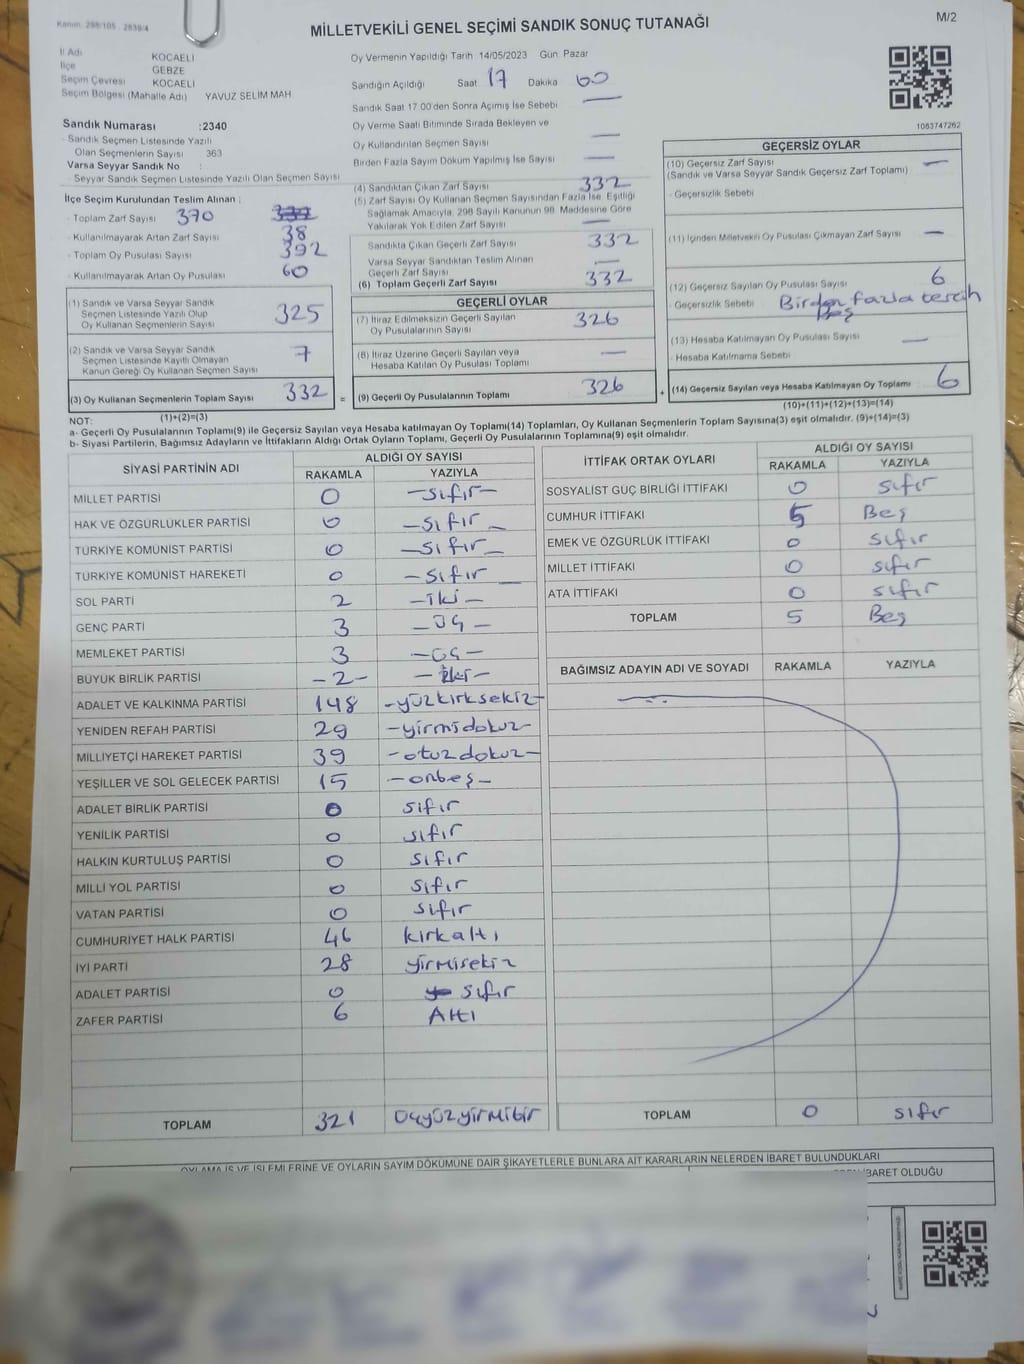 Kanun: 298/105 - 2839/4
MİLLETVEKİLİ GENEL SEÇİMİ SANDIK SONUÇ TUTANAĞI
M/2
İl Adı KOCAELİ
İlçe GEBZE
Seçim Çevresi KOCAELİ
Seçim Bölgesi (Mahalle Adı) YAVUZ SELİM MAH
Sandık Numarası :2340
- Sandık Seçmen Listesinde Yazılı
Olan Seçmenlerin Sayısı 363
Varsa Seyyar Sandık No :
- Seyyar Sandık Seçmen Listesinde Yazılı Olan Seçmen Sayısı
İlçe Seçim Kurulundan Teslim Alınan :
- Toplam Zarf Sayısı 370
- Kullanılmayarak Artan Zarf Sayısı 38
- Toplam Oy Pusulası Sayısı 392
- Kullanılmayarak Artan Oy Pusulası 60
(1) Sandık ve Varsa Seyyar Sandık
Seçmen Listesinde Yazılı Olup
Oy Kullanan Seçmenlerin Sayısı 325
(2) Sandık ve Varsa Seyyar Sandık
Seçmen Listesinde Kayıtlı Olmayan
Kanun Gereği Oy Kullanan Seçmen Sayısı 7
(3) Oy Kullanan Seçmenlerin Toplam Sayısı 332 =
(1)+(2)=(3)
Oy Vermenin Yapıldığı Tarih 14/05/2023 Gün Pazar
Sandığın Açıldığı Saat 17 Dakika 00
Sandık Saat 17:00'den Sonra Açımış İse Sebebi —
Oy Verme Saati Bitiminde Sırada Bekleyen ve
Oy Kullandırılan Seçmen Sayısı —
Birden Fazla Sayım Döküm Yapılmış İse Sayısı —
(4) Sandıktan Çıkan Zarf Sayısı 332
(5) Zarf Sayısı Oy Kullanan Seçmen Sayısından Fazla İse, Eşitliği
Sağlamak Amacıyla, 298 Sayılı Kanunun 98. Maddesine Göre
Yakılarak Yok Edilen Zarf Sayısı —
Sandıkta Çıkan Geçerli Zarf Sayısı 332
Varsa Seyyar Sandıktan Teslim Alınan
Geçerli Zarf Sayısı —
(6) Toplam Geçerli Zarf Sayısı 332
GEÇERLİ OYLAR
(7) İtiraz Edilmeksizin Geçerli Sayılan
Oy Pusulalarının Sayısı 326
(8) İtiraz Üzerine Geçerli Sayılan veya
Hesaba Katılan Oy Pusulası Toplamı —
(9) Geçerli Oy Pusulalarının Toplamı 326 +
1083747262
GEÇERSİZ OYLAR
(10) Geçersiz Zarf Sayısı —
(Sandık ve Varsa Seyyar Sandık Geçersiz Zarf Toplamı)
- Geçersizlik Sebebi
(11) İçinden Milletvekili Oy Pusulası Çıkmayan Zarf Sayısı —
(12) Geçersiz Sayılan Oy Pusulası Sayısı 6
- Geçersizlik Sebebi Birden fazla tercih
Beş
(13) Hesaba Katılmayan Oy Pusulası Sayısı —
- Hesaba Katılmama Sebebi
(14) Geçersiz Sayılan veya Hesaba Katılmayan Oy Toplamı 6
(10)+(11)+(12)+(13)=(14)
NOT:
a- Geçerli Oy Pusulalarının Toplamı(9) ile Geçersiz Sayılan veya Hesaba katılmayan Oy Toplamı(14) Toplamları, Oy Kullanan Seçmenlerin Toplam Sayısına(3) eşit olmalıdır. (9)+(14)=(3)
b- Siyasi Partilerin, Bağımsız Adayların ve İttifakların Aldığı Ortak Oyların Toplamı, Geçerli Oy Pusulalarının Toplamına(9) eşit olmalıdır.
SİYASİ PARTİNİN ADI ALDIĞI OY SAYISI
RAKAMLA YAZIYLA
MİLLET PARTİSİ 0 —sıfır—
HAK VE ÖZGÜRLÜKLER PARTİSİ 0 —sıfır—
TÜRKİYE KOMÜNİST PARTİSİ 0 —sıfır—
TÜRKİYE KOMÜNİST HAREKETİ 0 —sıfır—
SOL PARTİ 2 —iki—
GENÇ PARTİ 3 —Üç—
MEMLEKET PARTİSİ 3 —üç—
BÜYÜK BİRLİK PARTİSİ -2- —iki—
ADALET VE KALKINMA PARTİSİ 148 —yüzkırksekiz—
YENİDEN REFAH PARTİSİ 29 —yirmidokuz—
MİLLİYETÇİ HAREKET PARTİSİ 39 —otuzdokuz—
YEŞİLLER VE SOL GELECEK PARTİSİ 15 —onbeş—
ADALET BİRLİK PARTİSİ 0 sıfır
YENİLİK PARTİSİ 0 sıfır
HALKIN KURTULUŞ PARTİSİ 0 sıfır
MİLLİ YOL PARTİSİ 0 sıfır
VATAN PARTİSİ 0 sıfır
CUMHURİYET HALK PARTİSİ 46 kırkaltı
İYİ PARTİ 28 yirmisekiz
ADALET PARTİSİ 0 sıfır
ZAFER PARTİSİ 6 Altı
TOPLAM 321 Üçyüzyirmibir
İTTİFAK ORTAK OYLARI ALDIĞI OY SAYISI
RAKAMLA YAZIYLA
SOSYALİST GÜÇ BİRLİĞİ İTTİFAKI 0 sıfır
CUMHUR İTTİFAKI 5 Beş
EMEK VE ÖZGÜRLÜK İTTİFAKI 0 sıfır
MİLLET İTTİFAKI 0 sıfır
ATA İTTİFAKI 0 sıfır
TOPLAM 5 Beş
BAĞIMSIZ ADAYIN ADI VE SOYADI RAKAMLA YAZIYLA
TOPLAM 0 sıfır
OYLAMA İŞ VE İŞLEMLERİNE VE OYLARIN SAYIM DÖKÜMÜNE DAİR ŞİKAYETLERLE BUNLARA AİT KARARLARIN NELERDEN İBARET BULUNDUKLARI
İBARET OLDUĞU